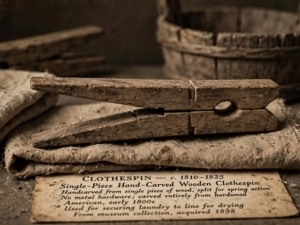 CLOTHESPIN — c. 1810–1825
Single-Piece Hand-Carved Wooden Clothespin
Handcarved from single piece of wood, split for spring action
No metal hardware; carved entirely from hardwood
American, early 1800s
Used for securing laundry to line for drying
From museum collection, acquired 1898